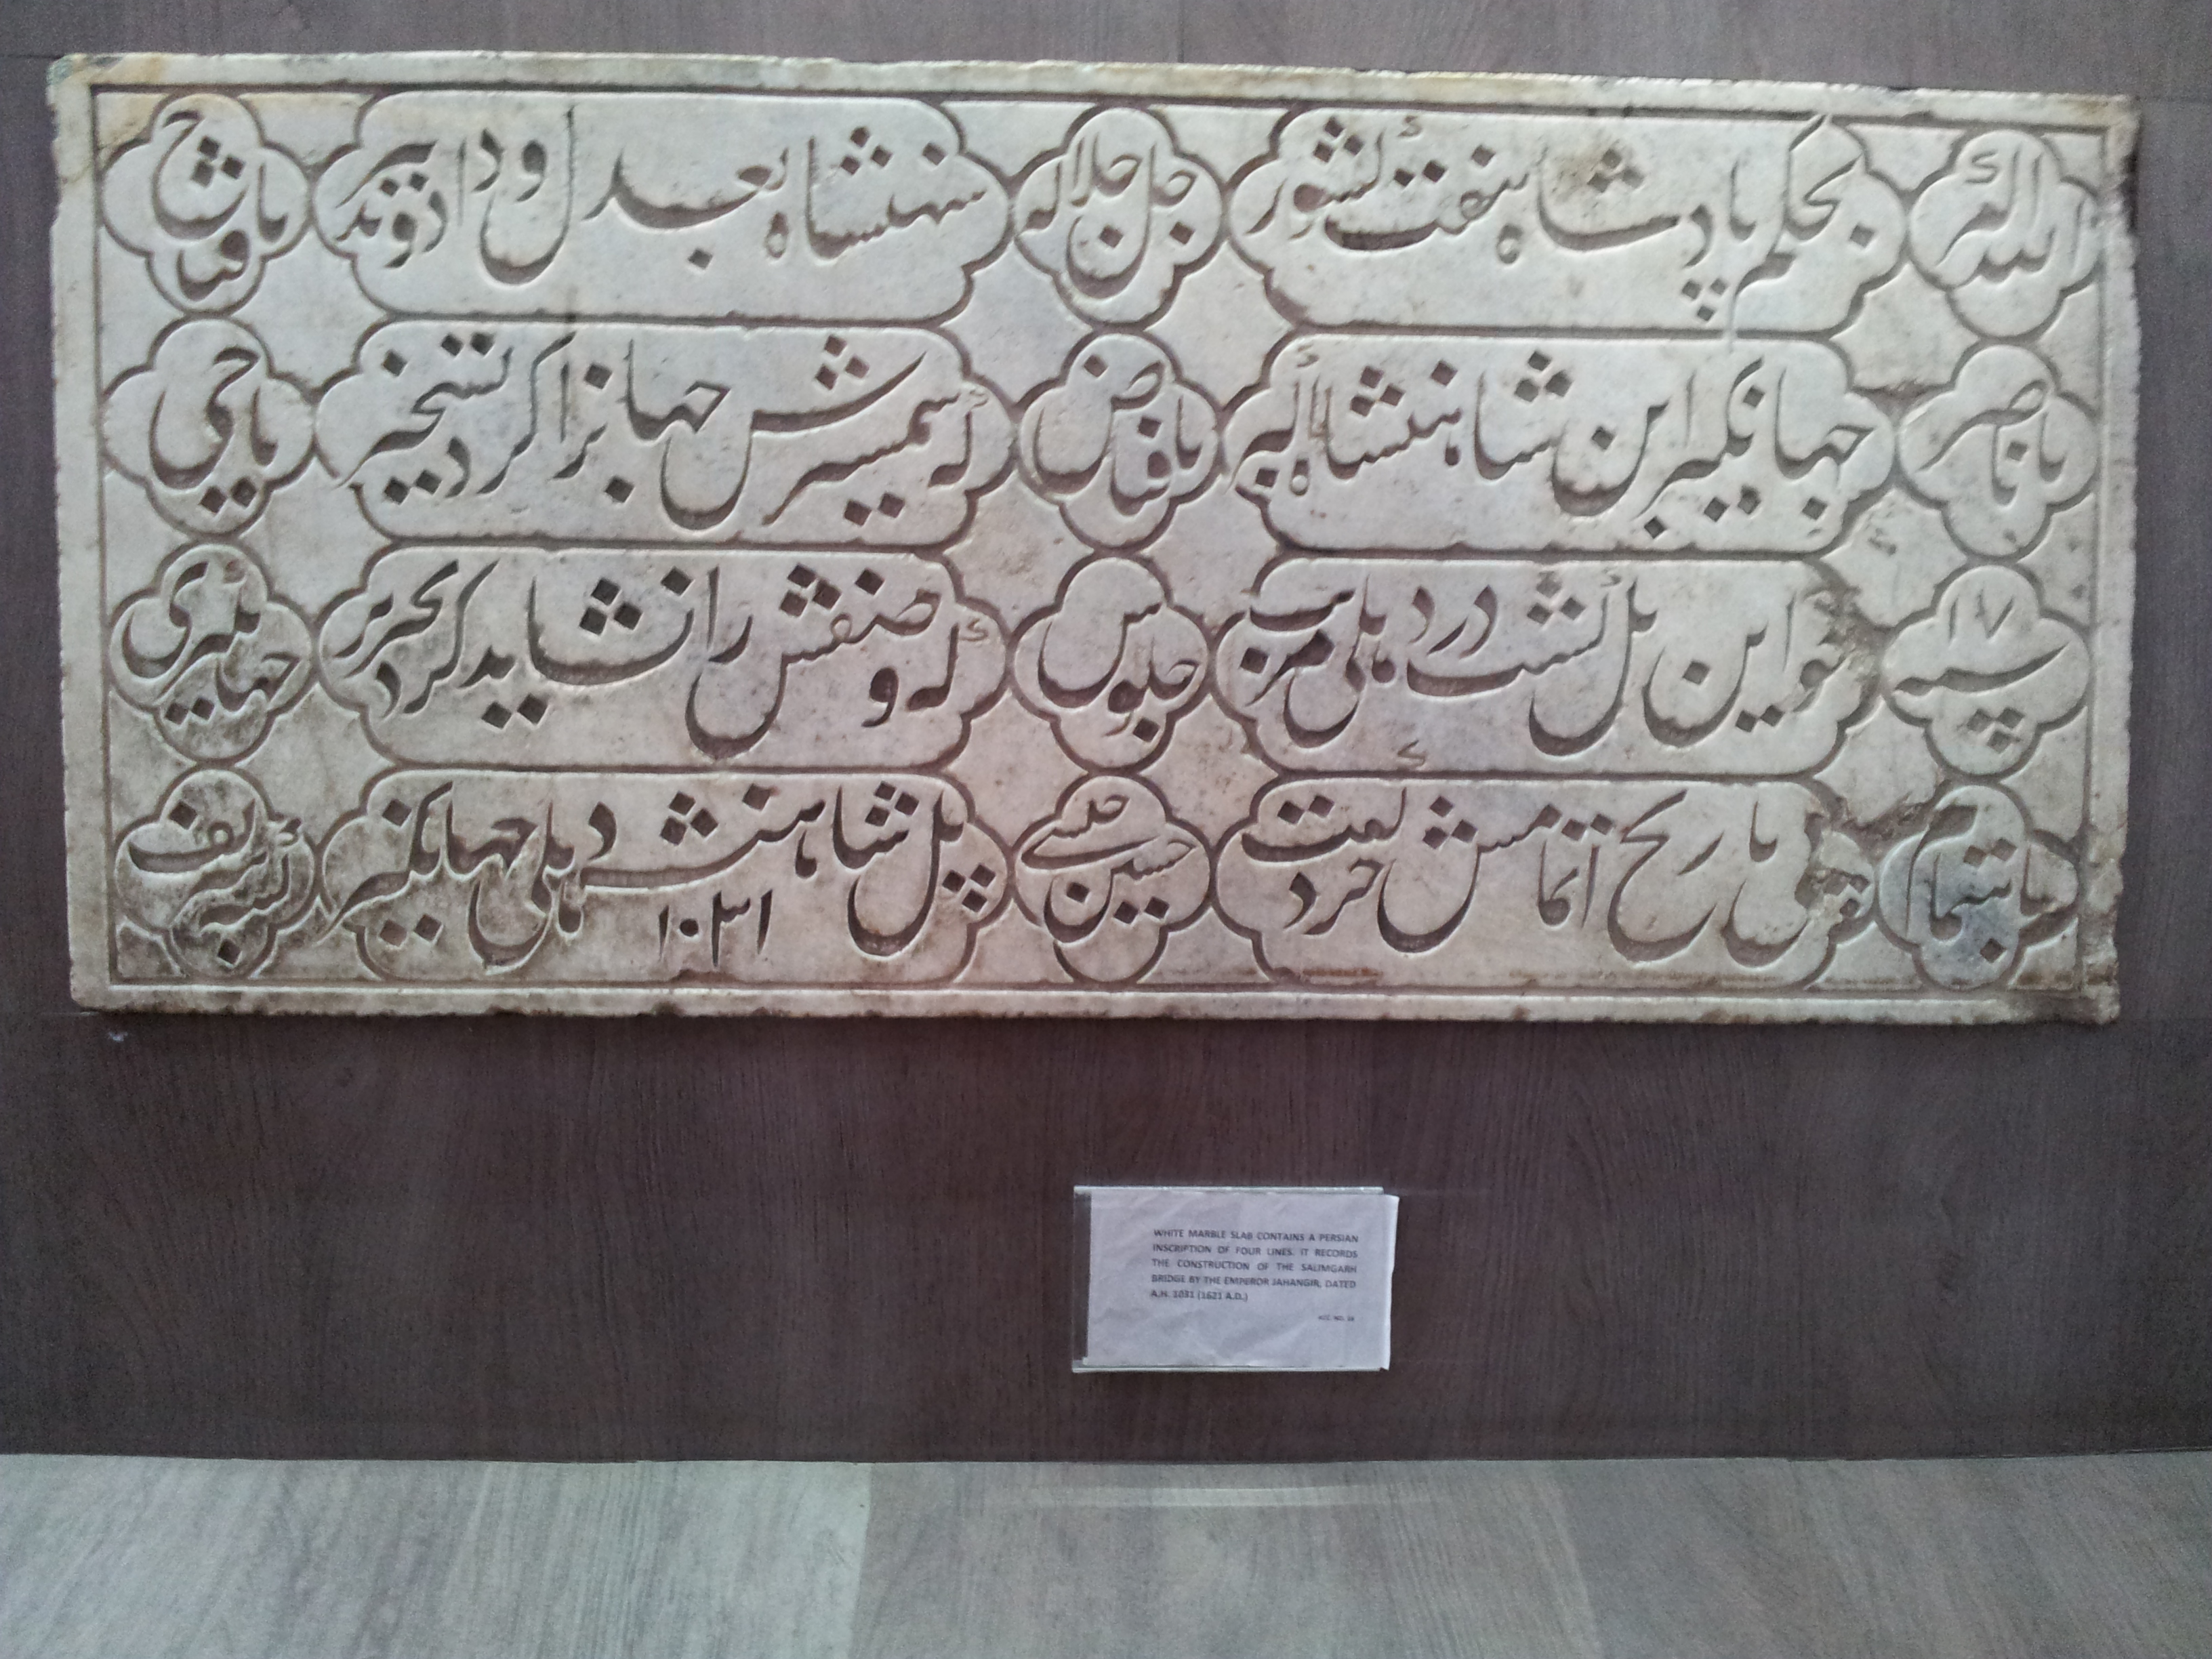 الله اکبر بحکم پادشاه هفت کشور جل جلاله شهنشاه بعدل و داد و تدبیر یا فتاح
یا ناصر جهانگیر ابن شاهنشاه اکبر یا فیاض که شمشیرش جهانرا کرد تسخیر یا حی
سنه ۱۷ چو این پل گشت در دهلی مرتب جلوس که وصفش را نشاید کرد تحریر جهانگیری
باهتمام پی تاریخ اتمامش خرد گفت حسین حلبی پل شاهنشه دهلی جهانگیر ۱۰۳۱ کمترین
WHITE MARBLE SLAB CONTAINS A PERSIAN
INSCRIPTION OF FOUR LINES. IT RECORDS
THE CONSTRUCTION OF THE SALIMGARH
BRIDGE BY THE EMPEROR JAHANGIR, DATED
A.H. 1031 (1621 A.D.)
ACC. NO.